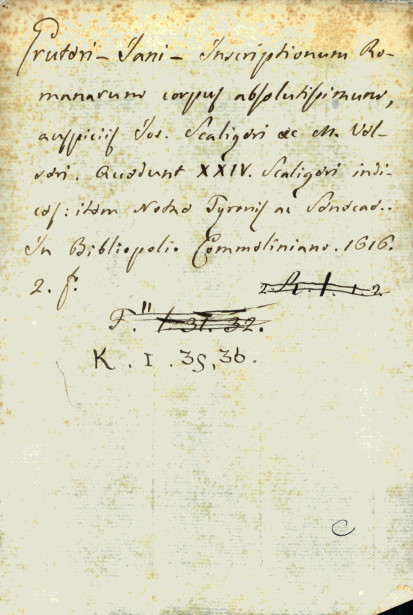 Gruteri - Jani - Inscriptionum Ro-
manarum corpus absolutissimum,
auspiciis Jos. Scaligeri ac M. Vel-
seri. Accedunt XXIV. Scaligeri indi-
ces: item Notae Tyronis ac Senecae.
In Bibliopolio Commeliniano. 1616.
2. f.
2. R. 1. 1. 2.
F." 1. 31. 32.
K. I. 35, 36.
C